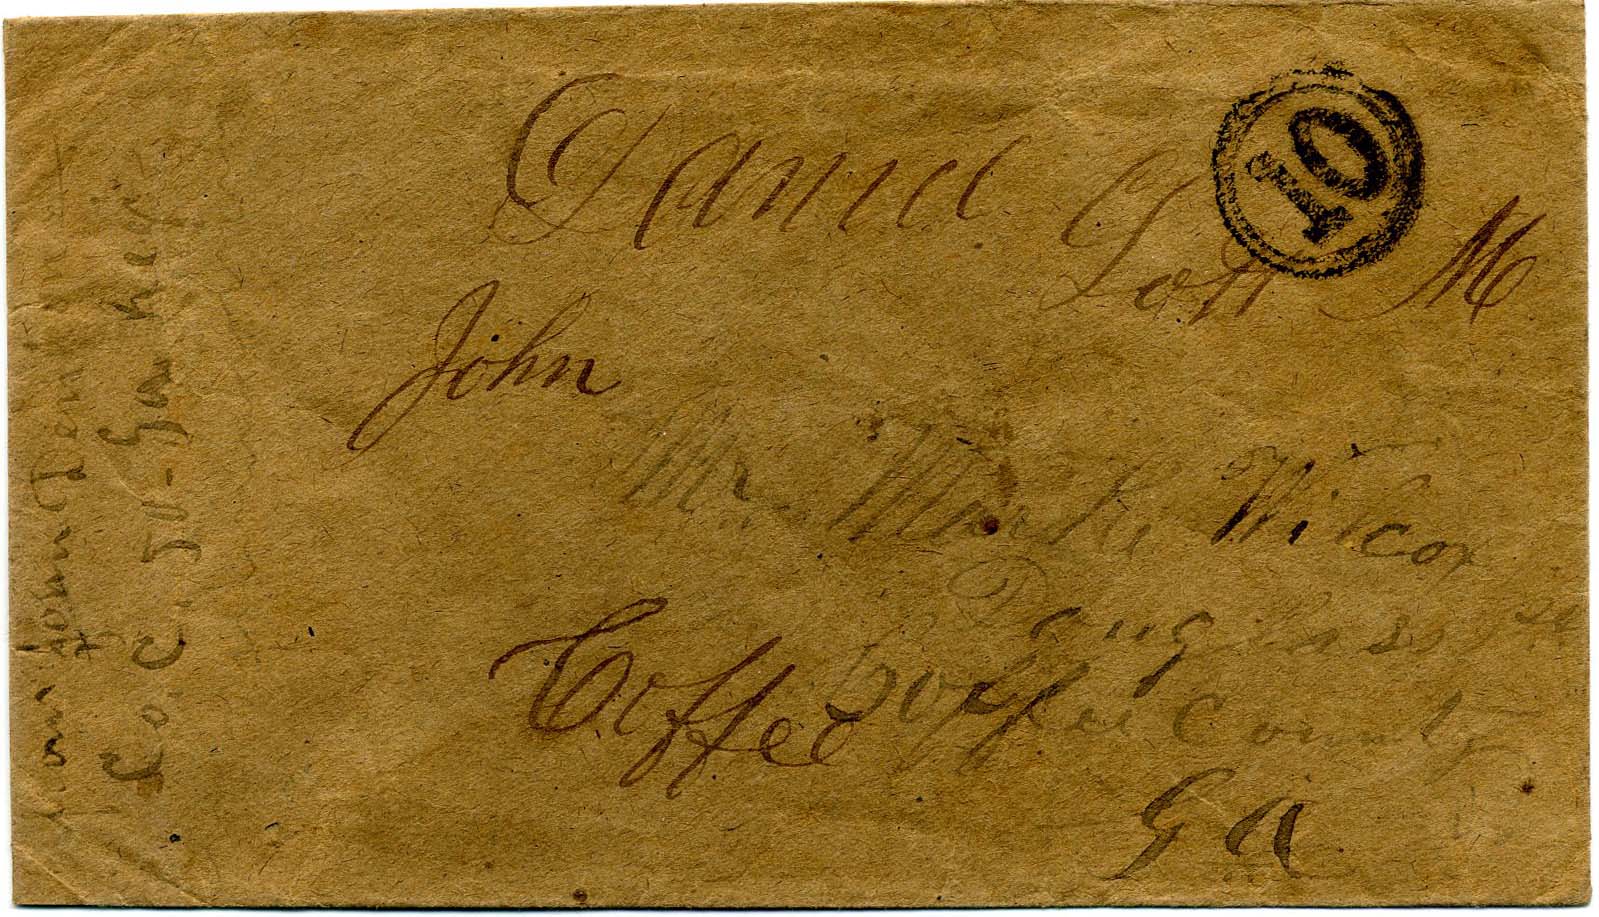 10
Daniel Lott M
John
Mr. Mark Wilcox
Douglass
Coffee
Coffee County
Ga
John
Co. C. 50 Ga